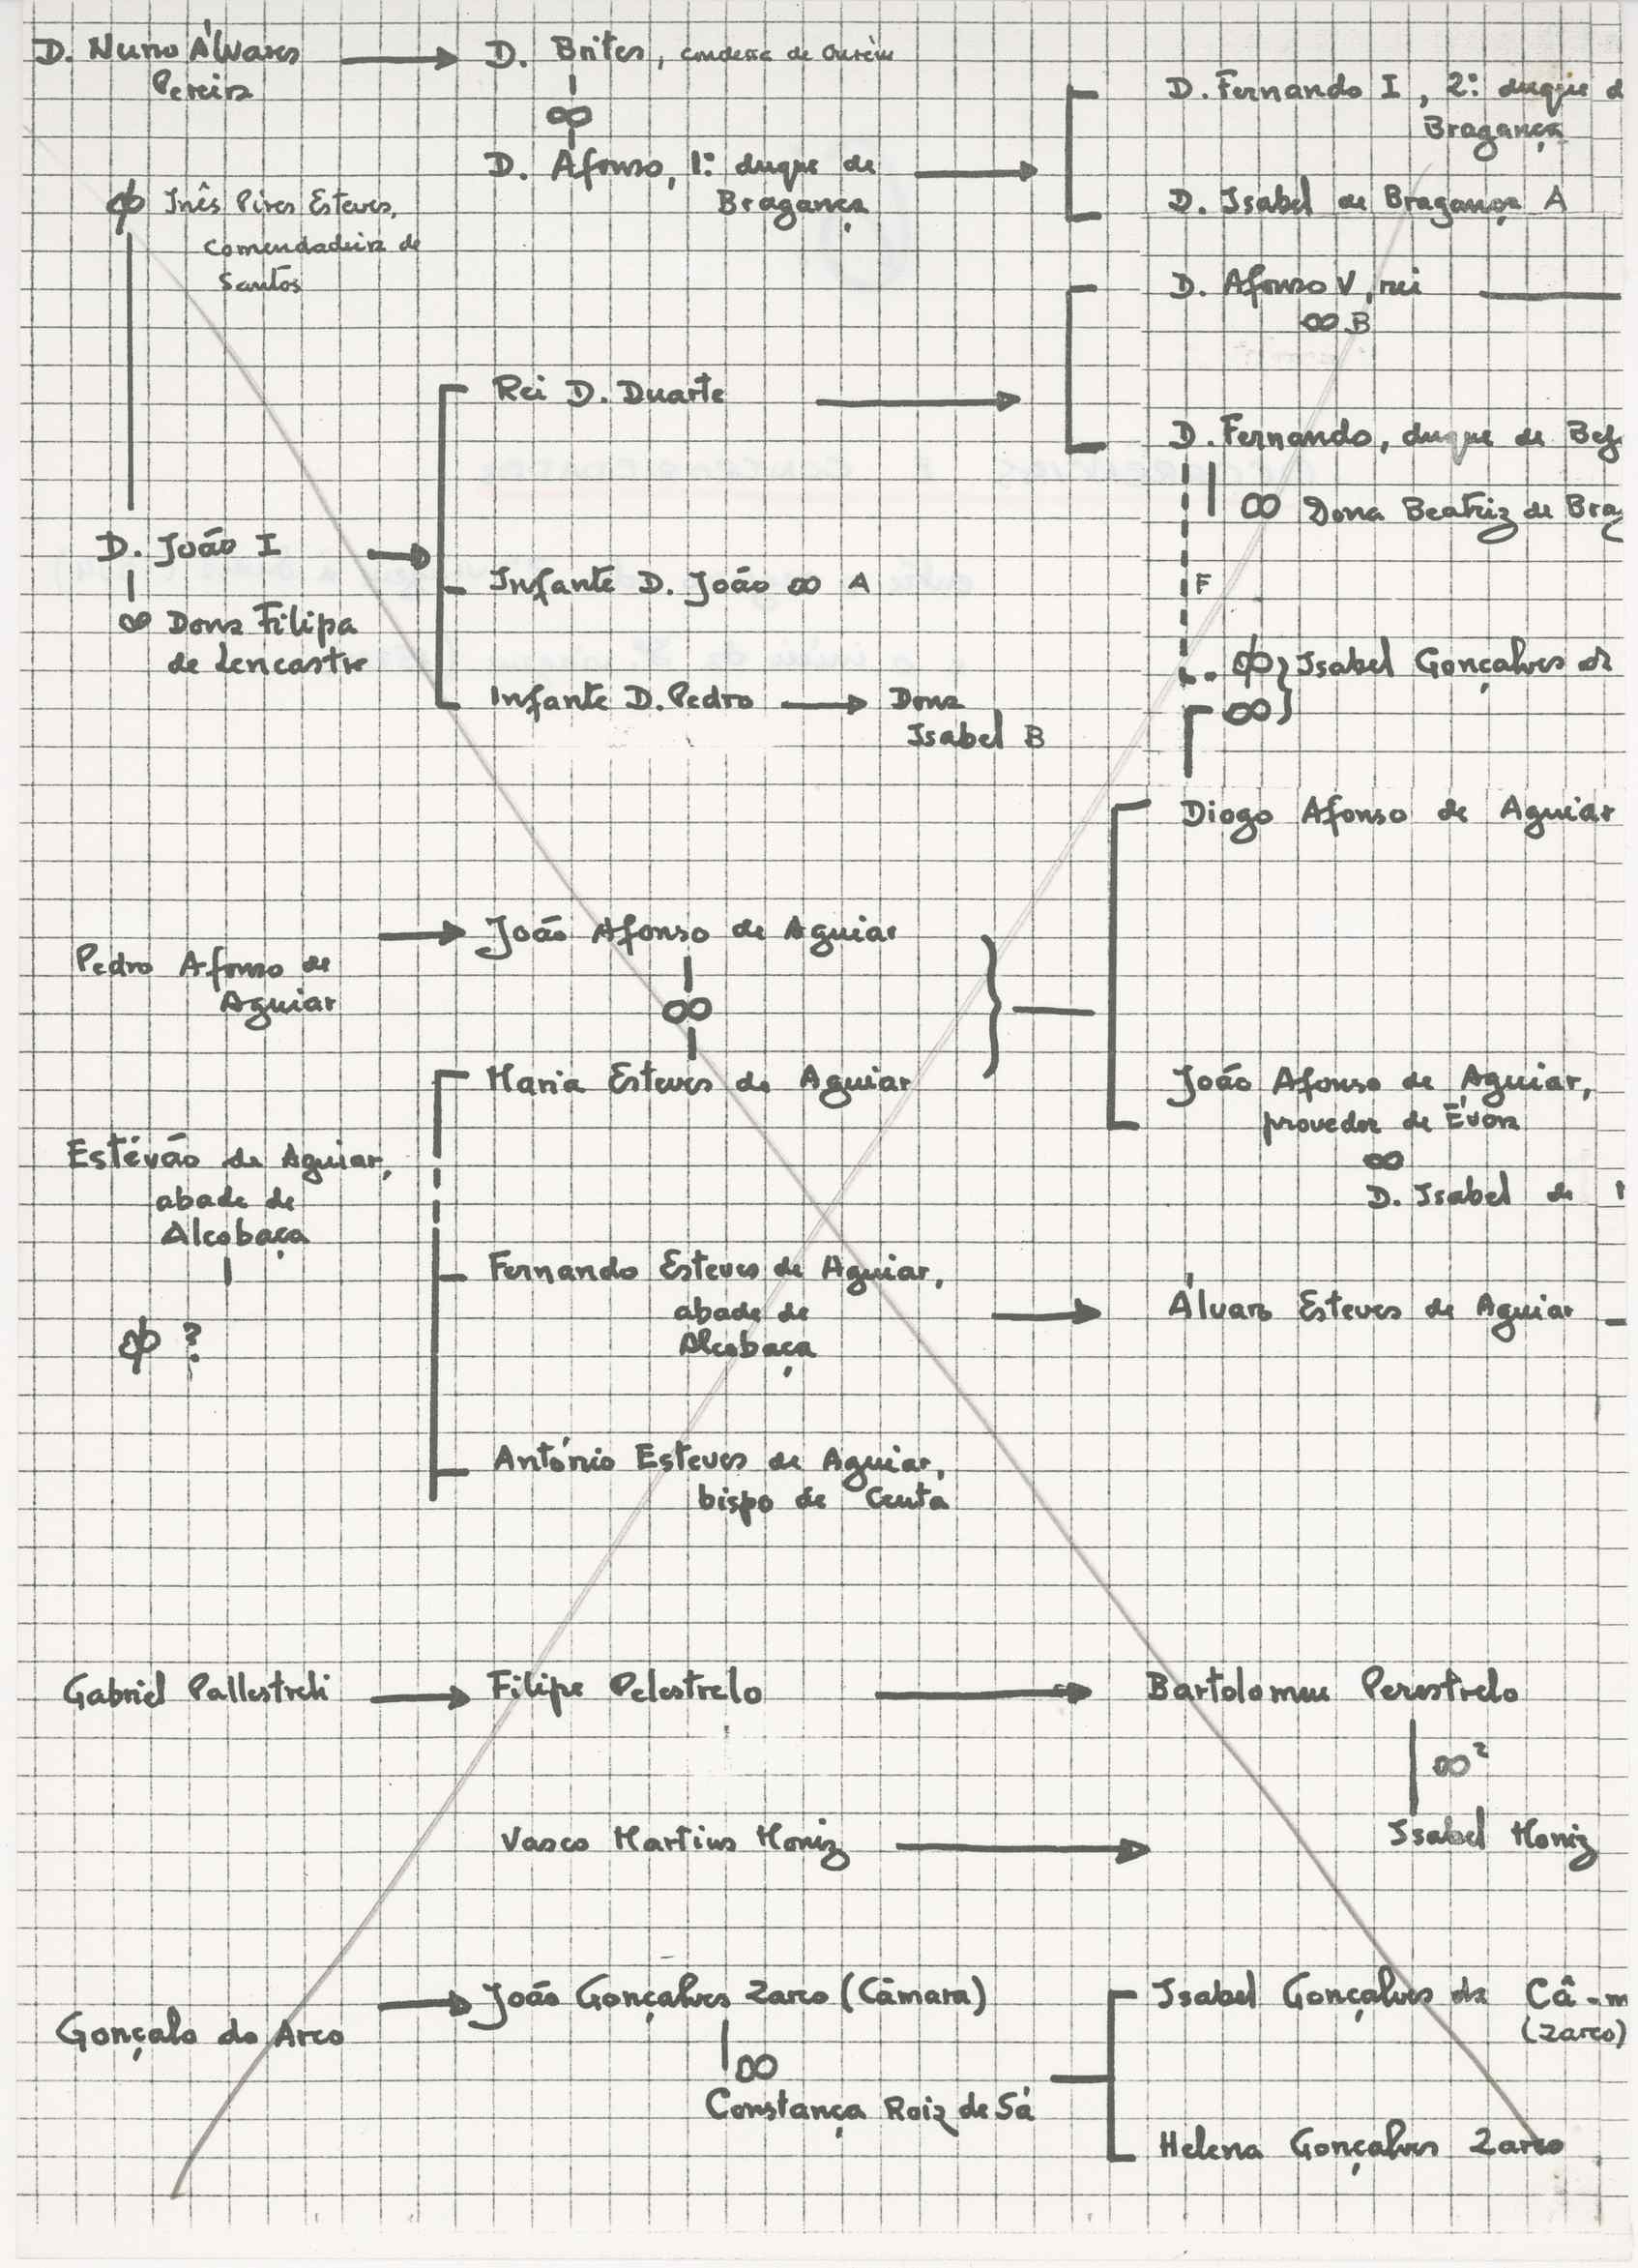 D. Nuno Álvares
Pereira
D. Brites, condessa de Ourém
∞
D. Afonso, 1º duque de
Bragança
D. Fernando I, 2º duque d
Bragança
D. Isabel de Bragança A
ф Inês Pires Esteves,
comendadeira de
Santos
D. Afonso V, rei
∞ B
Rei D. Duarte
D. Fernando, duque de Bej
∞ Dona Beatriz de Brag
D. João I
∞ Dona Filipa
de Lencastre
Infante D. João ∞ A
F
Infante D. Pedro
Dona
Isabel B
ф} Isabel Gonçalves da
∞}
Diogo Afonso de Aguiar
Pedro Afonso de
Aguiar
João Afonso de Aguiar
∞
Maria Esteves de Aguiar
João Afonso de Aguiar,
provedor de Évora
∞
D. Isabel de
Estévão de Aguiar,
abade de
Alcobaça
ф ?
Fernando Esteves de Aguiar,
abade de
Alcobaça
Álvaro Esteves de Aguiar
António Esteves de Aguiar,
bispo de Ceuta
Gabriel Pallestreli
Filipe Pelestrelo
Bartolomeu Perestrelo
∞²
Vasco Martins Moniz
Isabel Moniz
Gonçalo do Arco
João Gonçalves Zarco (Câmara)
∞
Constança Roiz de Sá
Isabel Gonçalves da Câ-m
(Zarco)
Helena Gonçalves Zarco